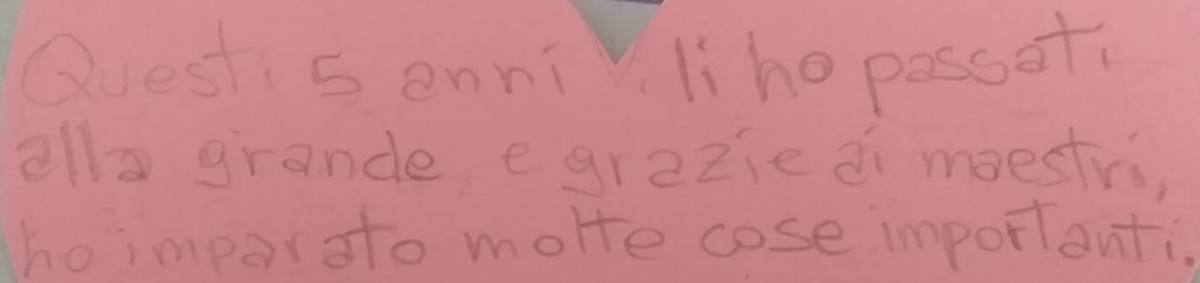 Questi 5 anni li ho passati
alla grande e grazie ai maestri,
ho imparato molte cose importanti.